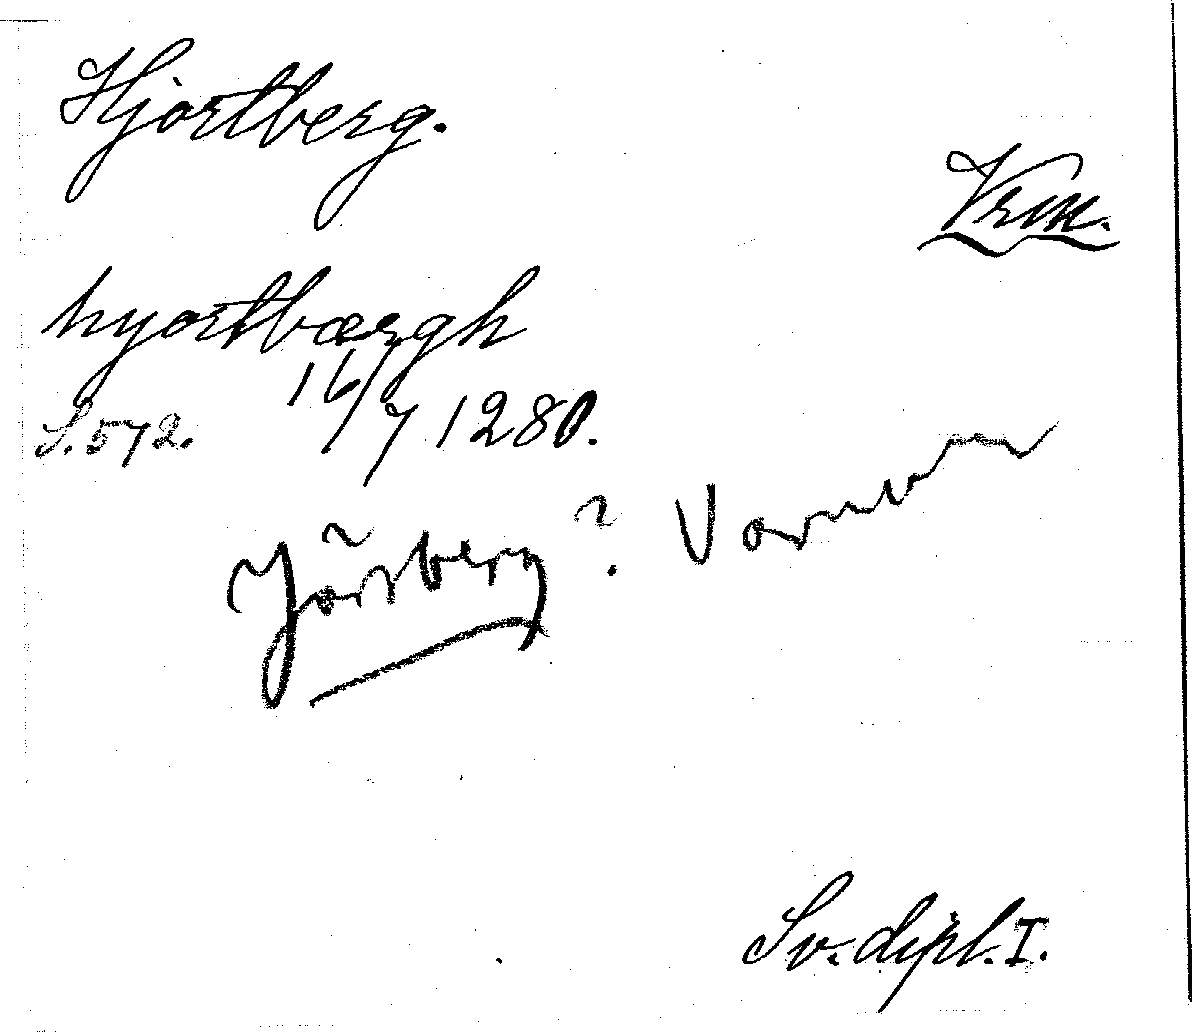 Hjortberg.
Vrm.
hyortbærgh
16/7 1280.
S. 572.
Jösberg?
Sv. dipl. I.